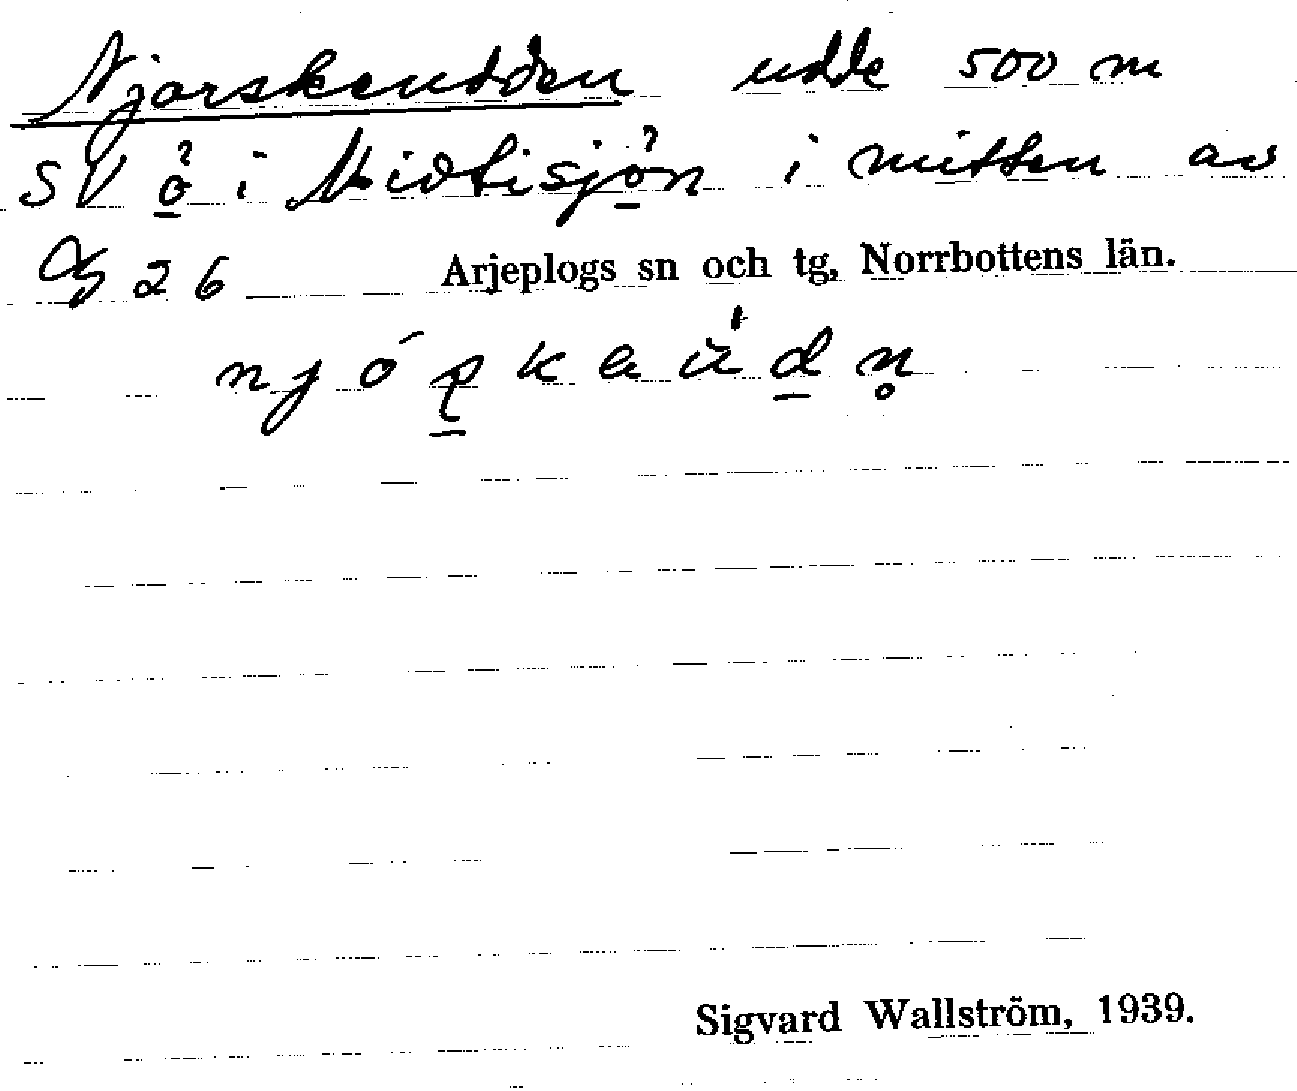 Njarskeudden udde 500 m
SV ö i Midtisjön i mitten av
26 Arjeplogs sn och tg, Norrbottens län.
Sigvard Wallström, 1939.